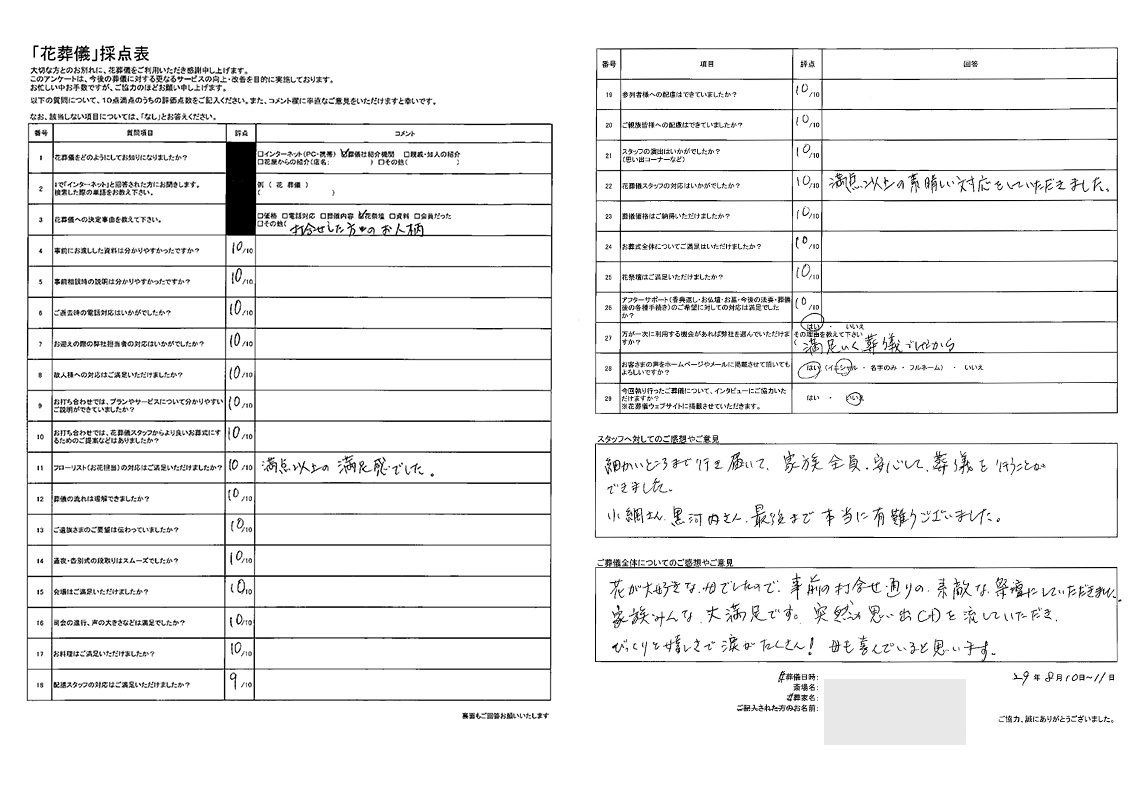 「花葬儀」採点表
大切な方とのお別れに、花葬儀をご利用いただき感謝申し上げます。
このアンケートは、今後の葬儀に対する更なるサービスの向上・改善を目的に実施しております。
お忙しい中お手数ですが、ご協力のほどお願い申し上げます。
以下の質問について、10点満点のうちの評価点数をご記入ください。また、コメント欄に率直なご意見をいただけますと幸いです。
なお、該当しない項目については、「なし」とお答えください。
番号 質問項目 評点 コメント
1 花葬儀をどのようにしてお知りになりましたか? □インターネット(PC・携帯) ☑葬儀社紹介機関 □親戚・知人の紹介
□花屋からの紹介(店名: ) □その他( )
2 1で「インターネット」と回答された方にお聞きします。 例 ( 花 葬儀 )
検索した際の単語をお教え下さい。 ( )
3 花葬儀への決定事由を教えて下さい。 □価格 □電話対応 □葬儀内容 ☑花祭壇 □資料 □会員だった
□その他( 打合せした方のお人柄
4 事前にお渡しした資料は分かりやすかったですか? 10/10
5 事前相談時の説明は分かりやすかったですか? 10/10
6 ご逝去時の電話対応はいかがでしたか? 10/10
7 お迎えの際の弊社担当者の対応はいかがでしたか? 10/10
8 故人様への対応はご満足いただけましたか? 10/10
9 お打ち合わせでは、プランやサービスについて分かりやすい 10/10
ご説明ができていましたか?
10 お打ち合わせでは、花葬儀スタッフからより良いお葬式に 10/10
するためのご提案などはありましたか?
11 フローリスト(お花担当)の対応はご満足いただけましたか? 10/10 満点以上の満足感でした。
12 葬儀の流れは理解できましたか? 10/10
13 ご遺族さまのご要望は伝わっていましたか? 10/10
14 通夜・告別式の段取りはスムーズでしたか? 10/10
15 会場はご満足いただけましたか? 10/10
16 司会の進行、声の大きさなどは満足でしたか? 10/10
17 お料理はご満足いただけましたか? 10/10
18 配膳スタッフの対応はご満足いただけましたか? 9/10
裏面もご回答お願いいたします
番号 項目 評点 回答
19 参列者様への配慮はできていましたか? 10/10
20 ご親族皆様への配慮はできていましたか? 10/10
21 スタッフの演出はいかがでしたか? 10/10
(思い出コーナーなど)
22 花葬儀スタッフの対応はいかがでしたか? 10/10 満点以上の素晴しい対応をしていただきました。
23 葬儀価格はご納得いただけましたか? 10/10
24 お葬式全体についてご満足はいただけましたか? 10/10
25 花祭壇はご満足いただけましたか? 10/10
26 アフターサポート(香典返し・お仏壇・お墓・今後の法要・葬儀 10/10
後の各種手続き)のご希望に対しての対応は満足でした
か?
27 万が一次に利用する機会があれば弊社を選んでいただけま
すか?
はい ・ いいえ
その理由を教えて下さい
( 満足いく葬儀でしたから
28 お客さまの声をホームページやメールに掲載させて頂いても
よろしいですか?
はい (イニシャル ・ 名字のみ ・ フルネーム) ・ いいえ
29 今回執り行ったご葬儀について、インタビューにご協力いた
だけますか?
※花葬儀ウェブサイトに掲載させていただきます。
はい ・ いいえ
スタッフへ対してのご感想やご意見
細かいところまで行き届いて、家族全員、安心して、葬儀を行うことが
できました。
小綱さん、黒河内さん、最後まで本当に有難うございました。
ご葬儀全体についてのご感想やご意見
花が大好きな母でしたので、事前の打合せ通りの、素敵な祭壇にしていただきました。
家族みんな、大満足です。突然の思い出CDを流していただき、
びっくりと嬉しさで涙がたくさん! 母も喜んでいると思います。
葬儀日時: 29年8月10日~11日
斎場名:
葬家名:
ご記入された方のお名前:
ご協力、誠にありがとうございました。